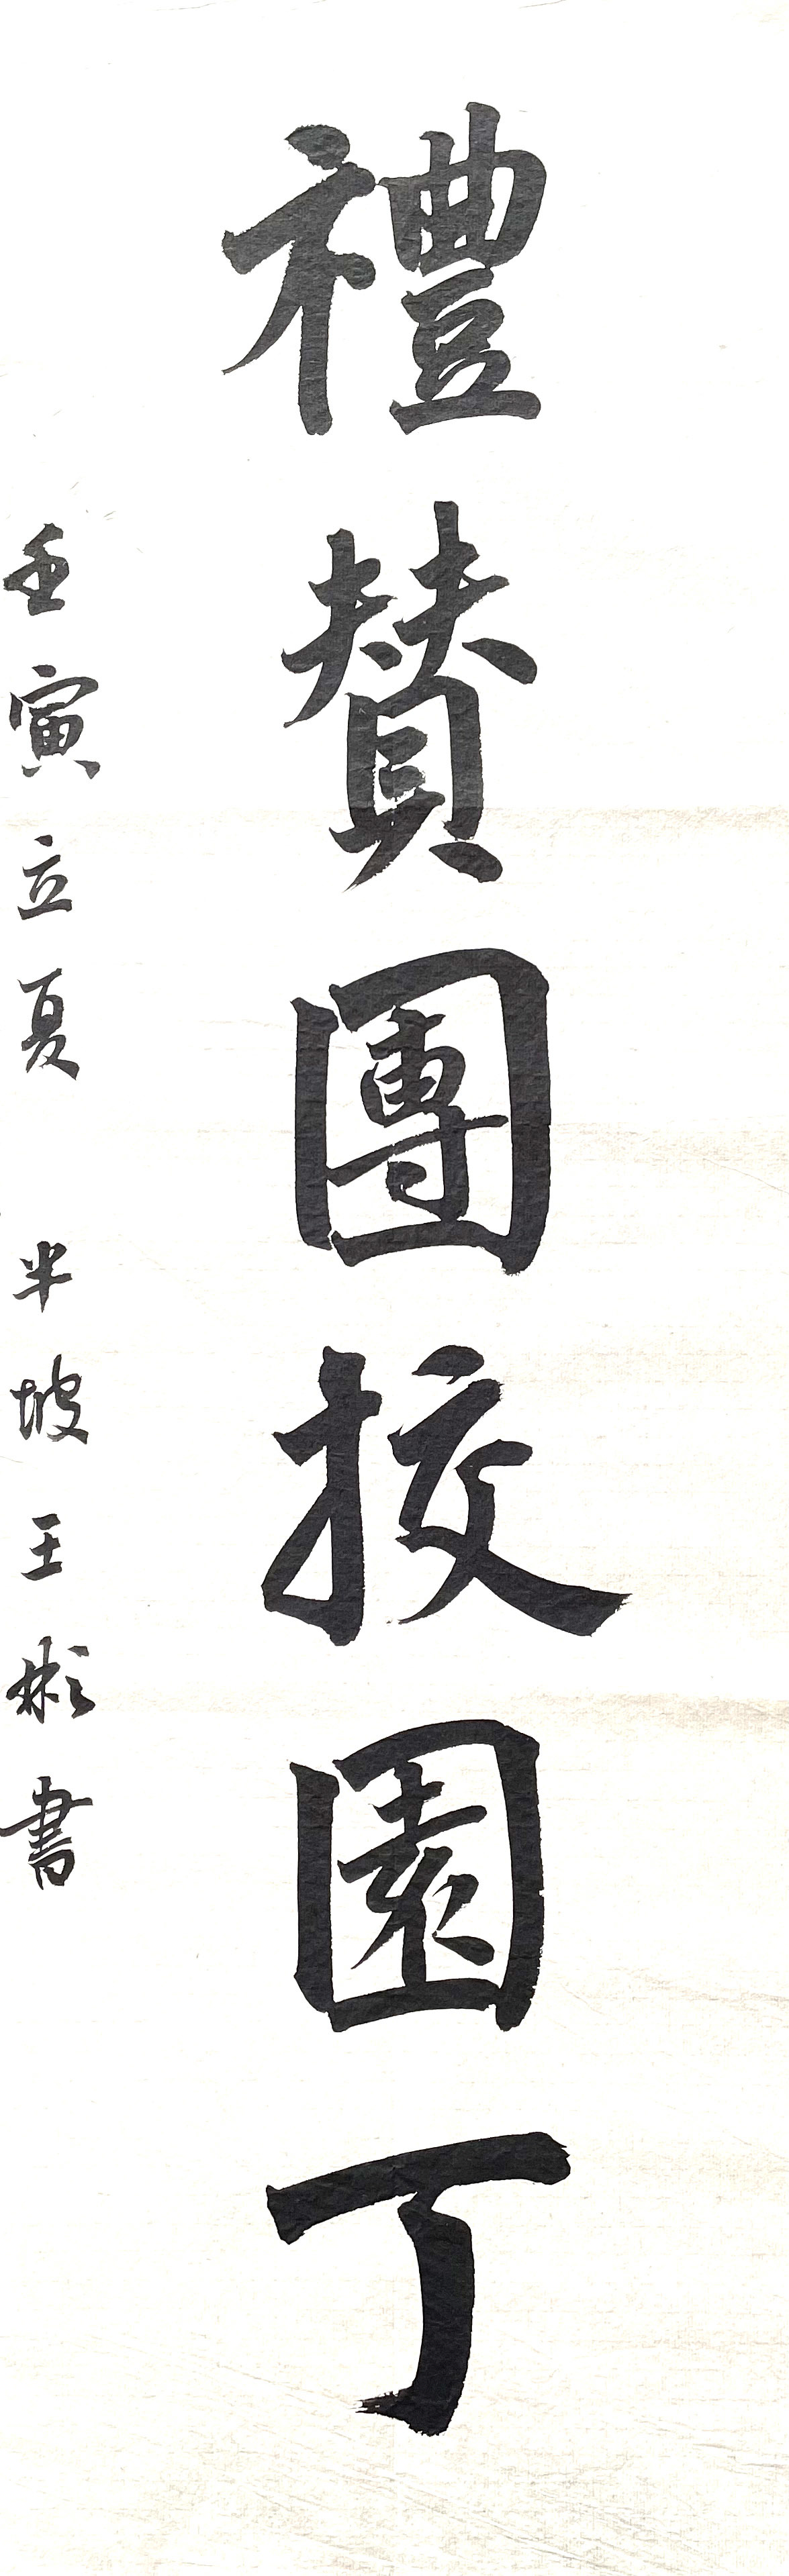 禮賛團挍園丁
壬寅立夏 半坡王彬書